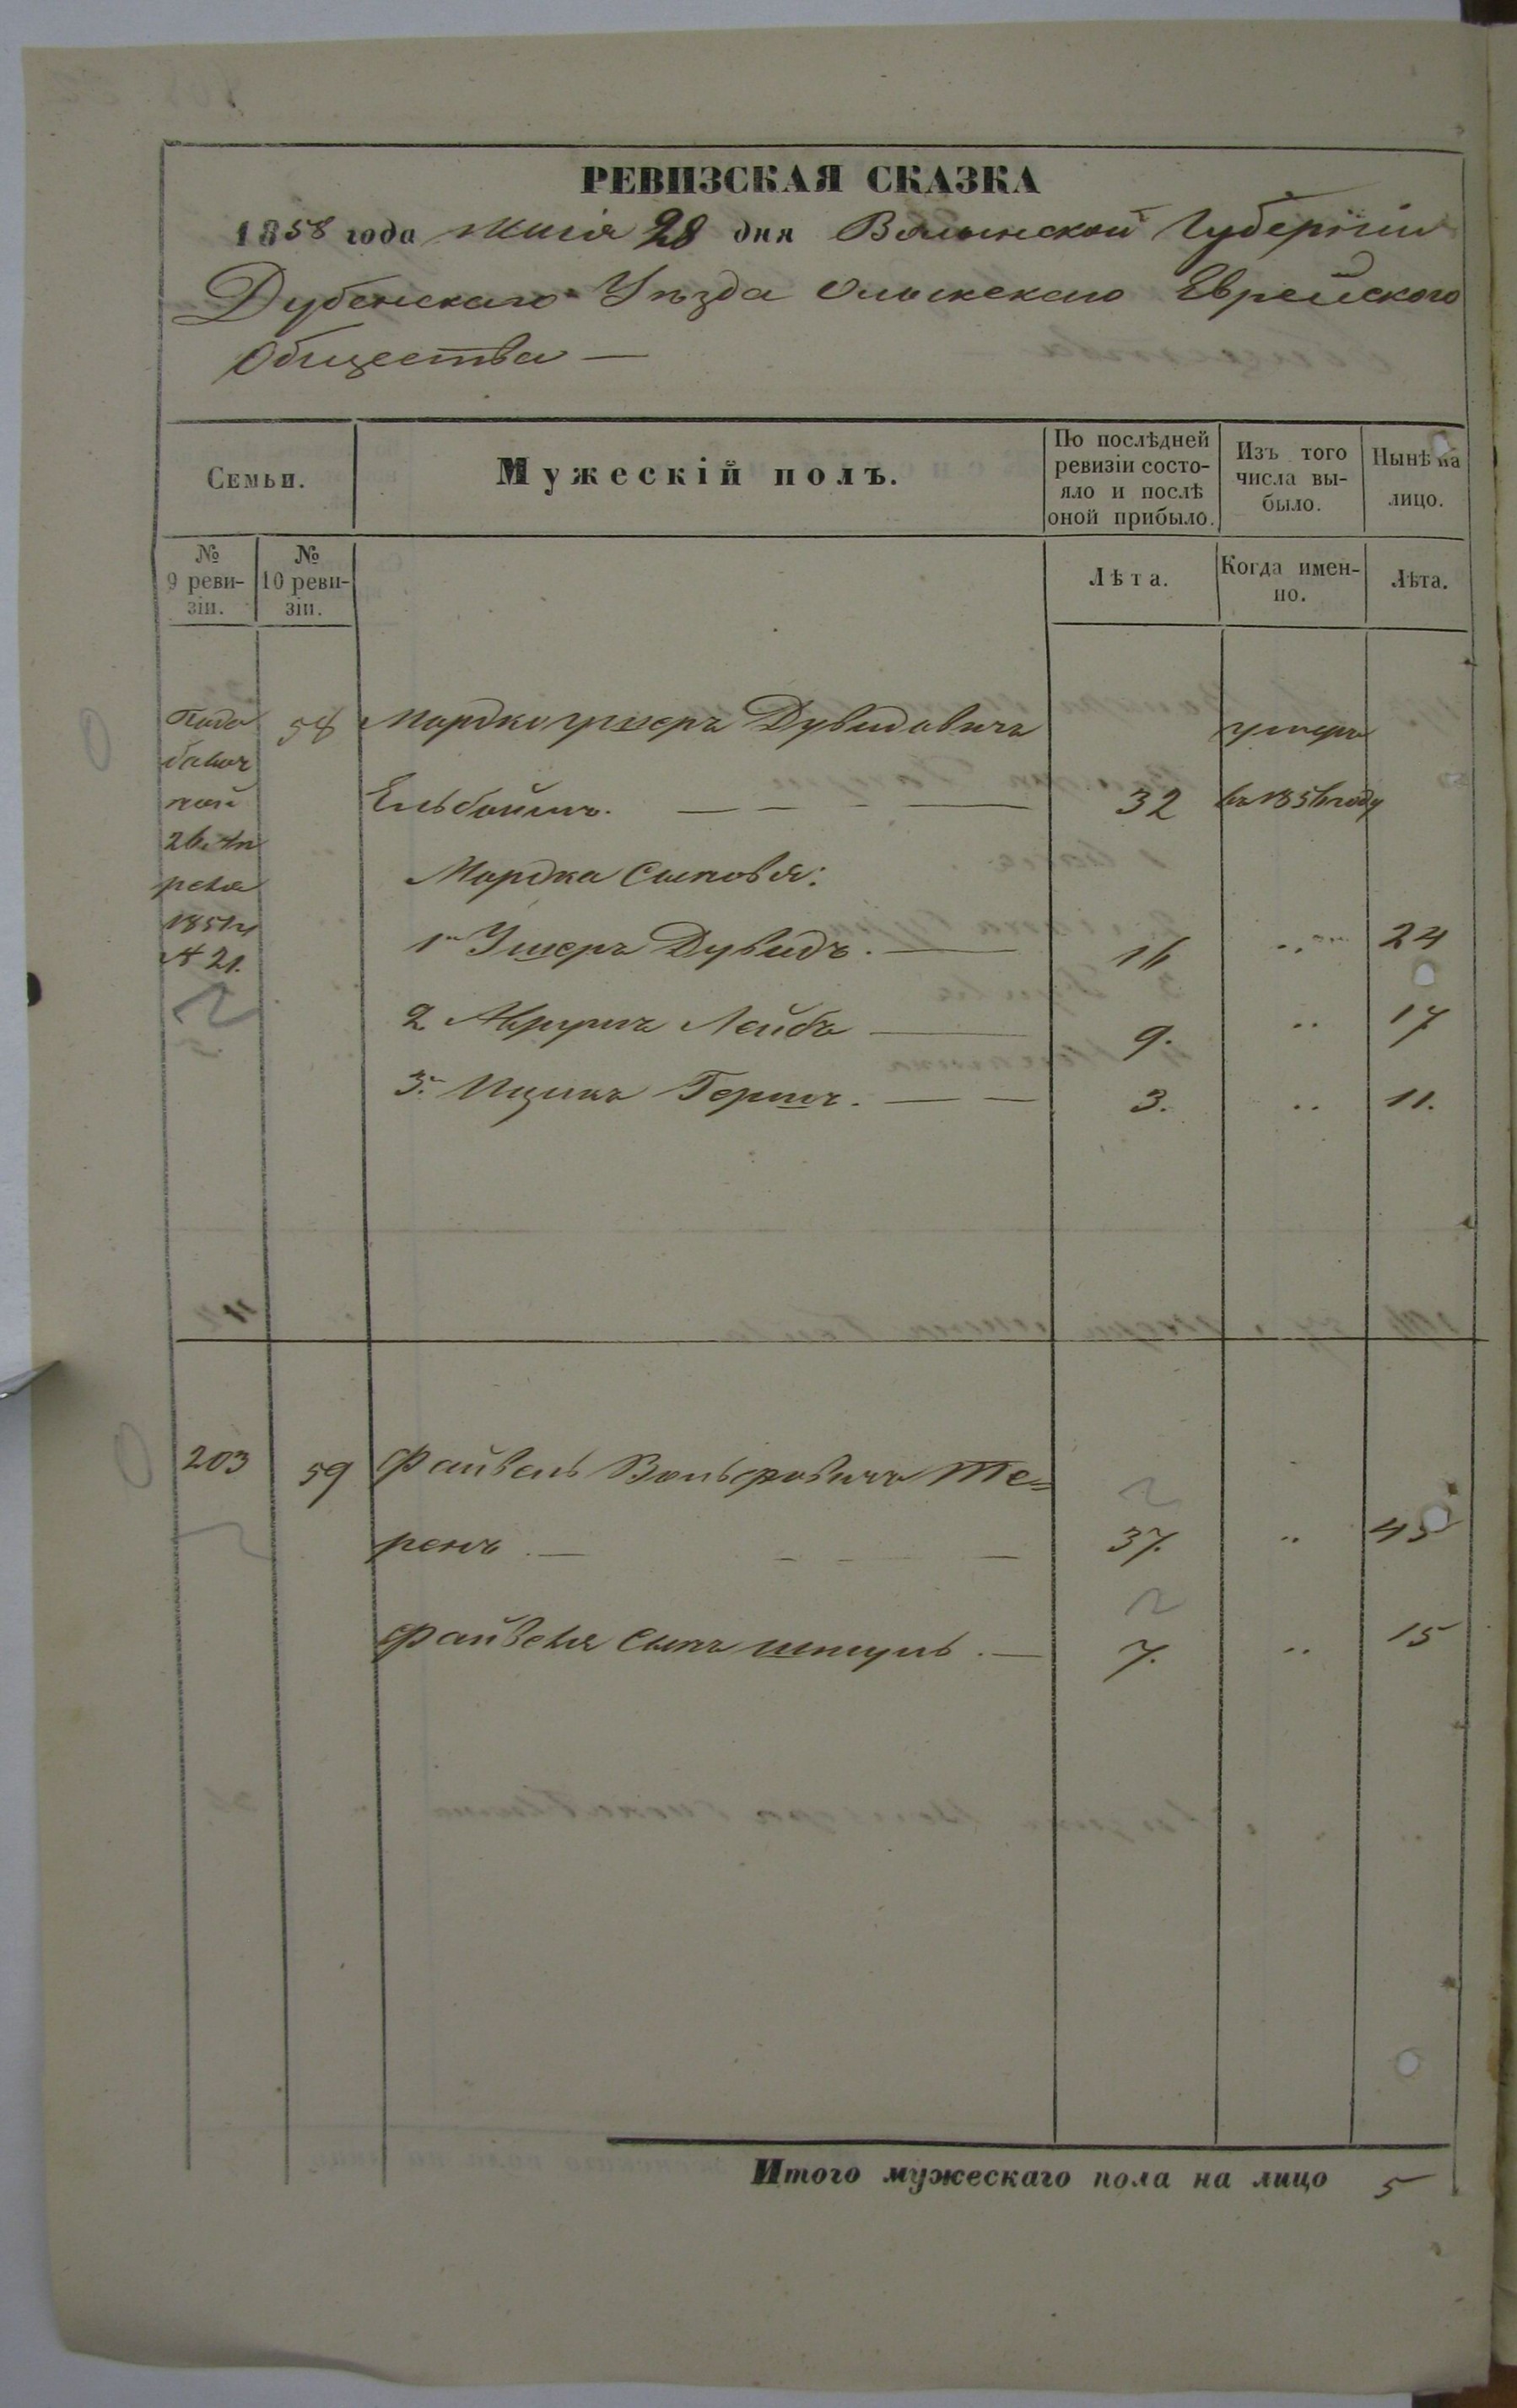 РЕВИЗСКАЯ СКАЗКА
1858 года Маія 28 дня Волынской Губерніи
Дубенскаго Уѣзда Олыкскаго Еврейского
Общества —
Семьи.
Мужескій полъ.
По послѣдней ревизіи состо-
яло и послѣ
оной прибыло.
Изъ того
числа вы-
было.
Нынѣ на
лицо.
№
9 реви-
зіи.
№
10 реви-
зіи.
Лѣта.
Когда имен-
но.
Лѣта.
58 Мордко Дувидовичъ умеръ
32 въ 1856 году
26 Ап
реля
№ 21.
Мордка Сыновья:
1 Ушеръ Дувидъ. — 16 .. 24
2 Лейбъ — 9. .. 17
3. Ицикъ Гершъ. — — 3. .. 11.
203 59 Файвель Вольфовичъ Те=
ренъ. — 37. .. 45
Файвеля Сынъ Шмуль. — 7. .. 15
Итого мужескаго пола на лицо 5